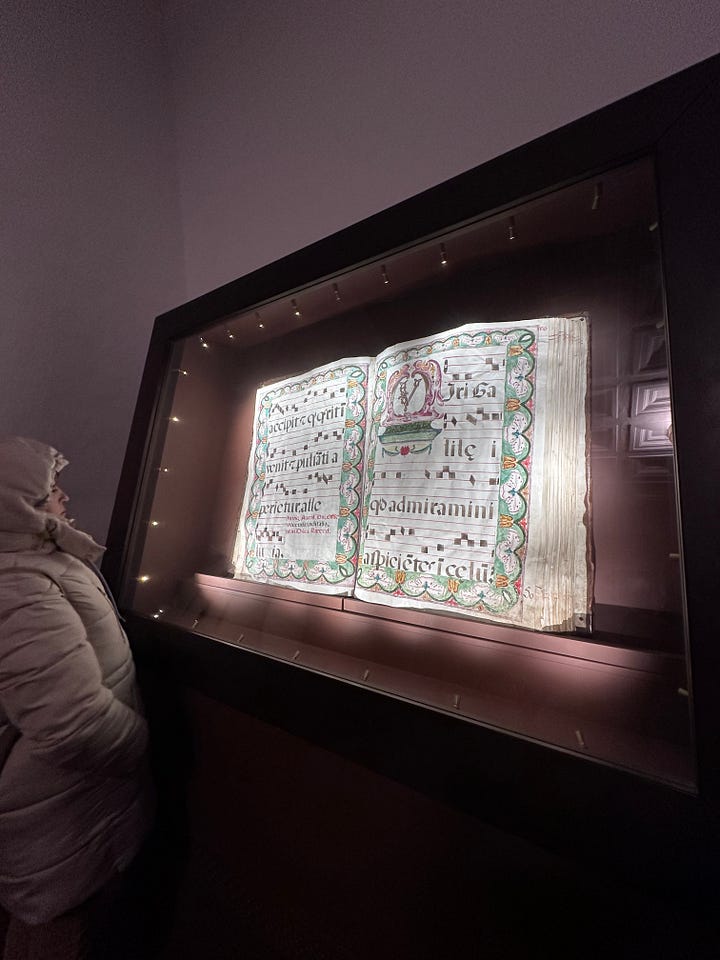 accipit⁊ q q̄rit ī
venit⁊ pulsāti a
perietur.alle
lu ia.
Viri Ga
lilę i
qd admiramini
aspiciētes ī celū?